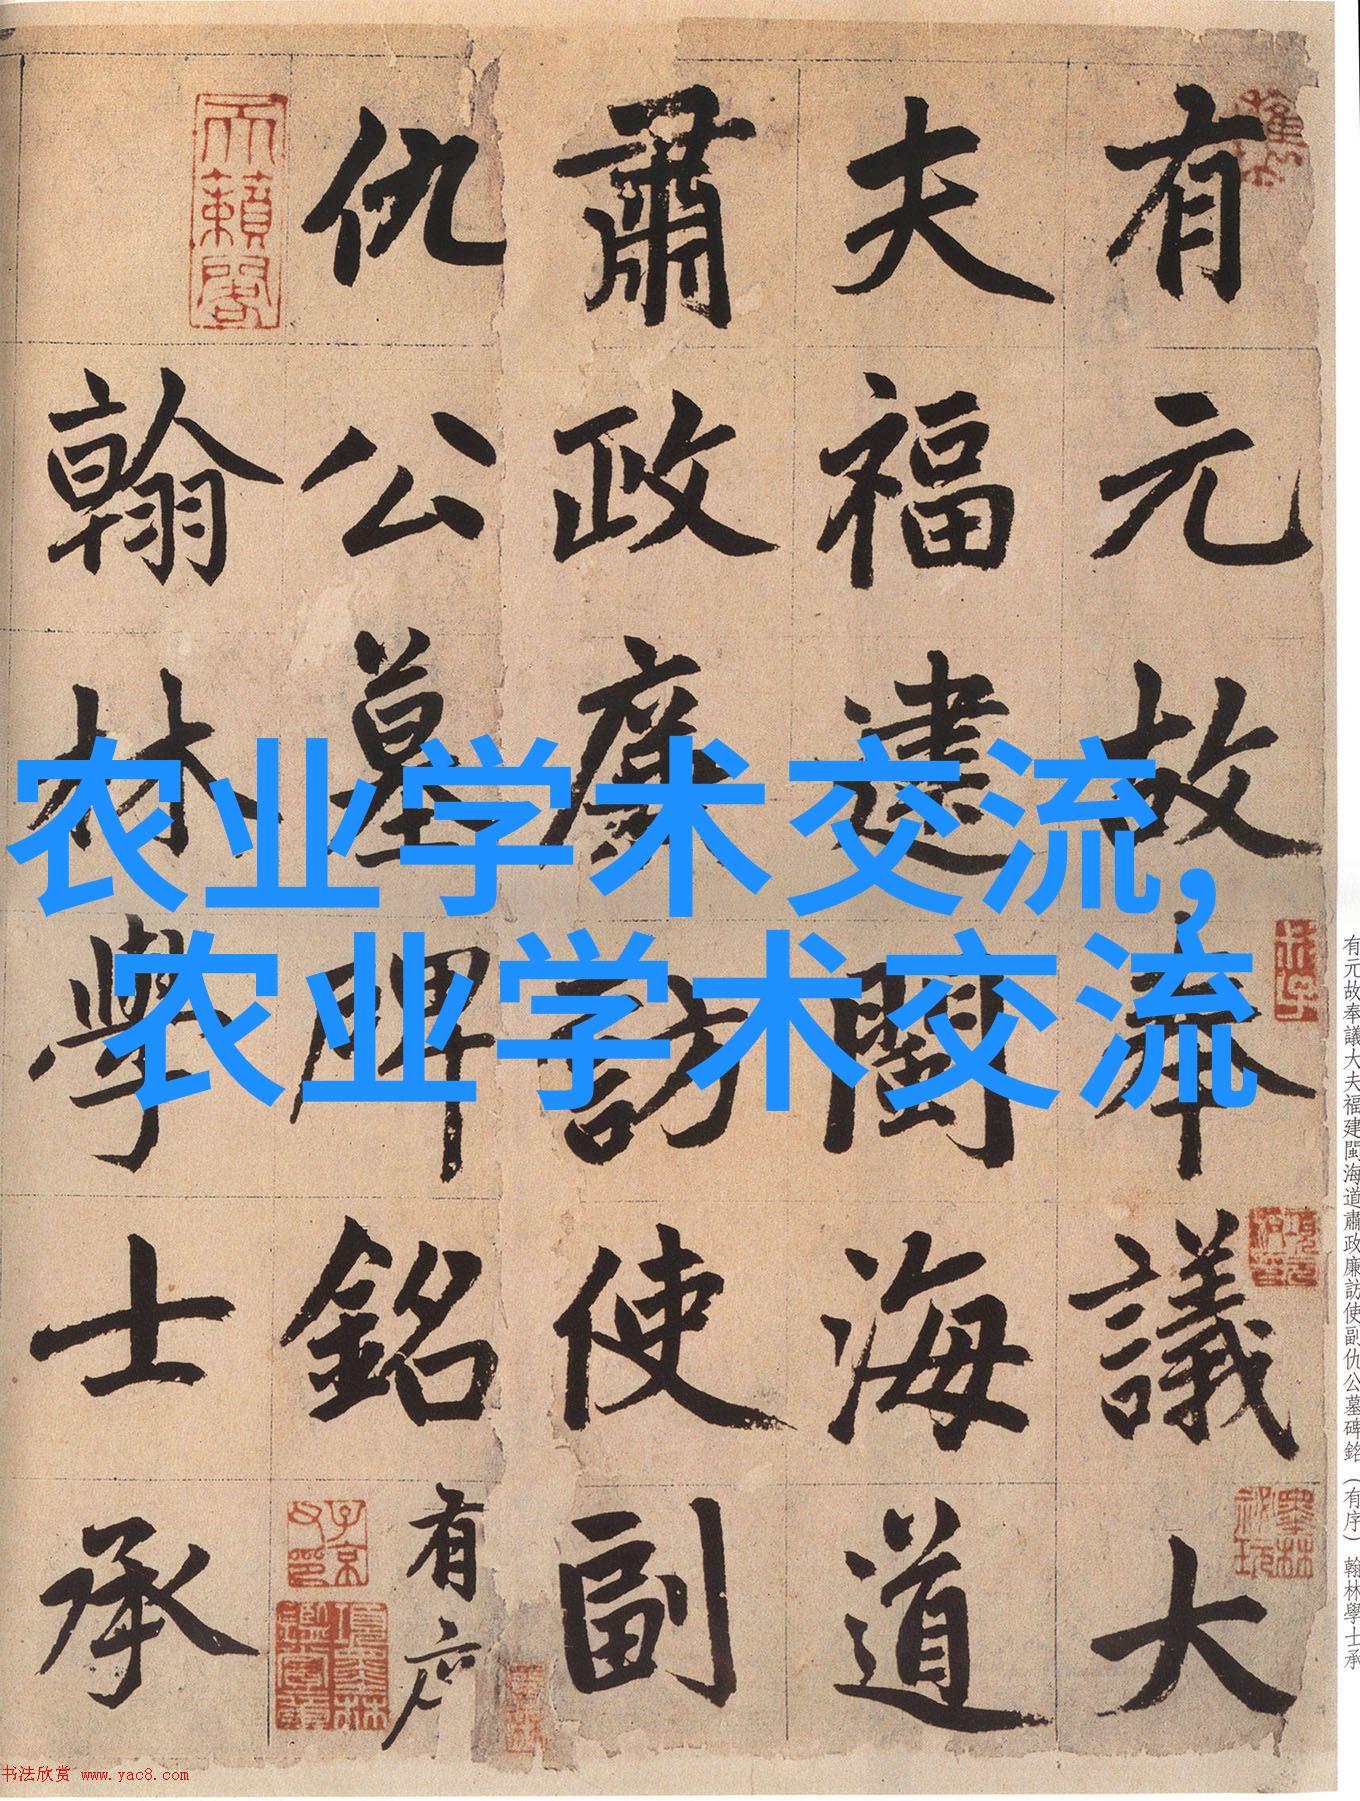 有元故奉議大
夫福建閩海道
肅政廉訪使副
仇公墓碑銘有序
翰林學士承
天籟閣
子京父印
項墨林鑑賞章
墨林祕玩
項元汴印
农业学术交流,
农业学术交流
有元故奉議大夫福建閩海道肅政廉訪使副仇公墓碑銘（有序）翰林學士承
书法欣赏 www.yac8.com